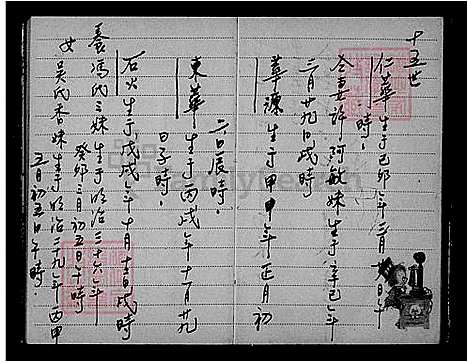 十五世
仁華生于己卯年三月廿日午
時.
念妻許阿敏妹生于辛巳年
三月廿九日戌時
華源生于甲申年正月初
二日辰時.
東華生于丙戌年十一月廿九
日子時.
石火生于戊戌年十月十三日戌時
養馮氏三妹生于明治三十六年
癸卯三月初五日午時
女吳氏香妹生于明治三九年丙甲
五月初五日午時.